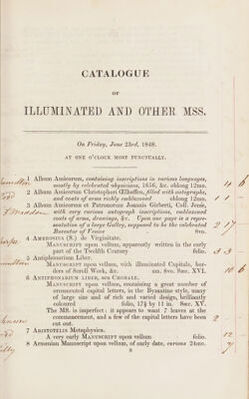 CATALOGUE
OF
ILLUMINATED AND OTHER MSS.
On Friday, June 23rd, 1848.
AT ONE O'CLOCK MOST PUNCTUALLY.
1 Album Amicorum, containing inscriptions in various languages,
mostly by celebrated physicians, 1656, &c. oblong 12mo.
2 Album Amicorum Christophori filled with autographs,
and coats of arms richly emblazoned oblong 12mo.
3 Album Amicorum et Patronorum Joannis Girberti, Coll. Jenie,
with very curious autograph inscriptions, emblazoned
coats of arms, drawings, &c. Upon one page is a repre-
sentation of a large Galley, supposed to be the celebrated
Bucentor of Venice 8vo.
4 AMBROSIUS (S.) de Virginitate.
MANUSCRIPT upon vellum, apparently written in the early
part of the Twelfth Century folio.
5 Antiphonarium Liber.
MANUSCRIPT upon vellum, with illuminated Capitals, bor-
ders of Scroll Work, &c. sm. 8vo. SÆC. XVI.
6 ANTIPHONARIUM LIBER, seu CHORALE.
MANUSCRIPT upon vellum, containing a great number of
ornamented capital letters, in the Byzantine style, many
of large size and of rich and varied design, brilliantly
coloured folio, 17½ by 11 in. SÆC. XV.
The MS. is imperfect: it appears to want 7 leaves at the
commencement, and a few of the capital letters have been
cut out.
7 ARISTOTELIS Metaphysica.
A very early MANUSCRIPT upon vellum folio.
8 Armenian Manuscript upon vellum, of early date, curious 24mo.
B